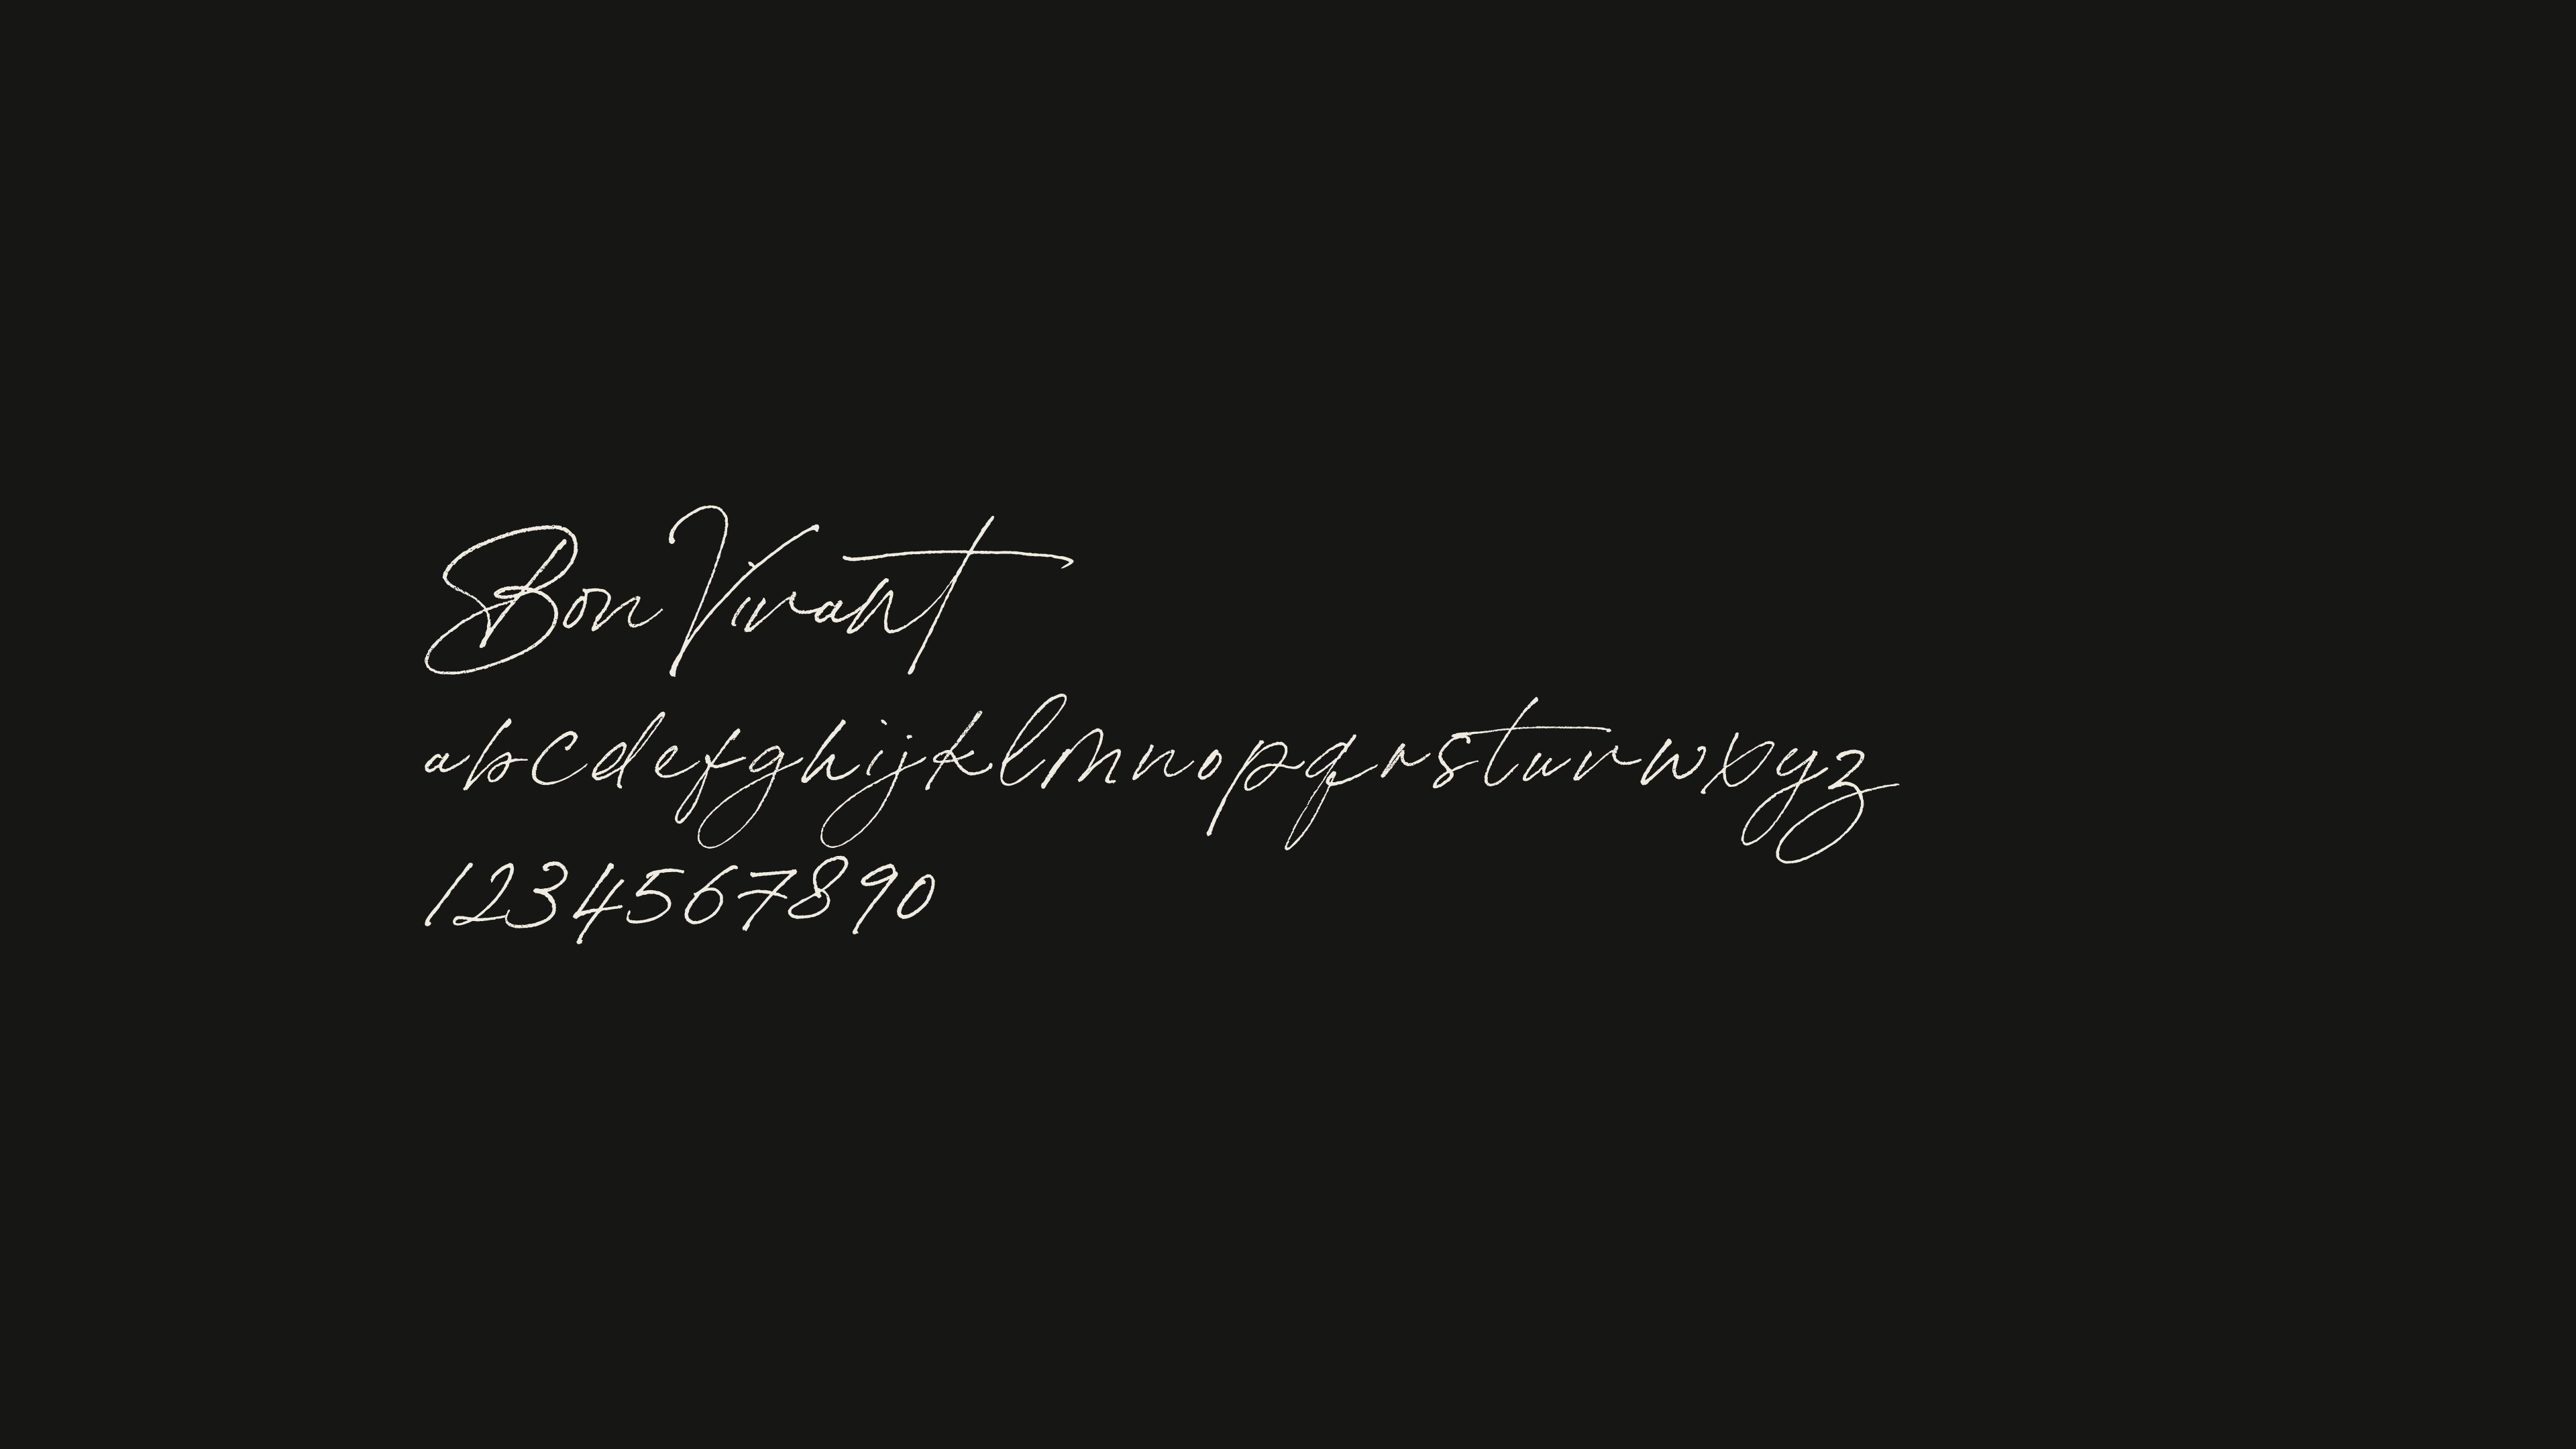 Bon Vivant
abcdefghijklmnopqrstuvwxyz
1234567890